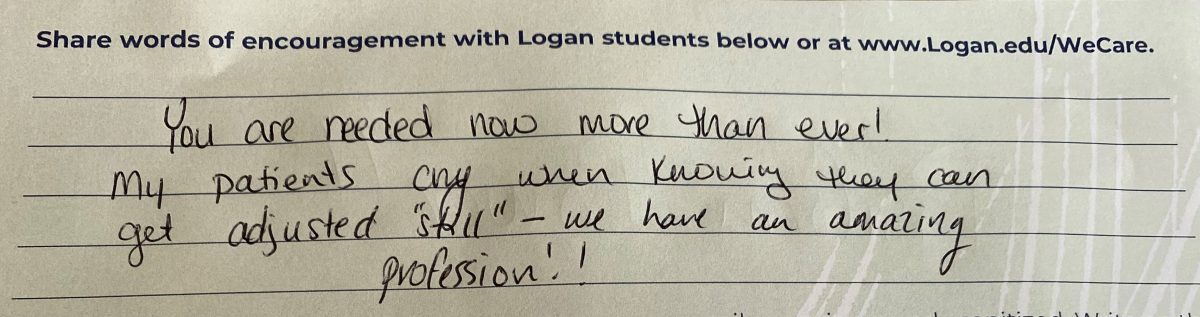 Share words of encouragement with Logan students below or at www.Logan.edu/WeCare.
You are needed now more than ever!
My patients cry when knowing they can
get adjusted "still" – we have an amazing
profession!!